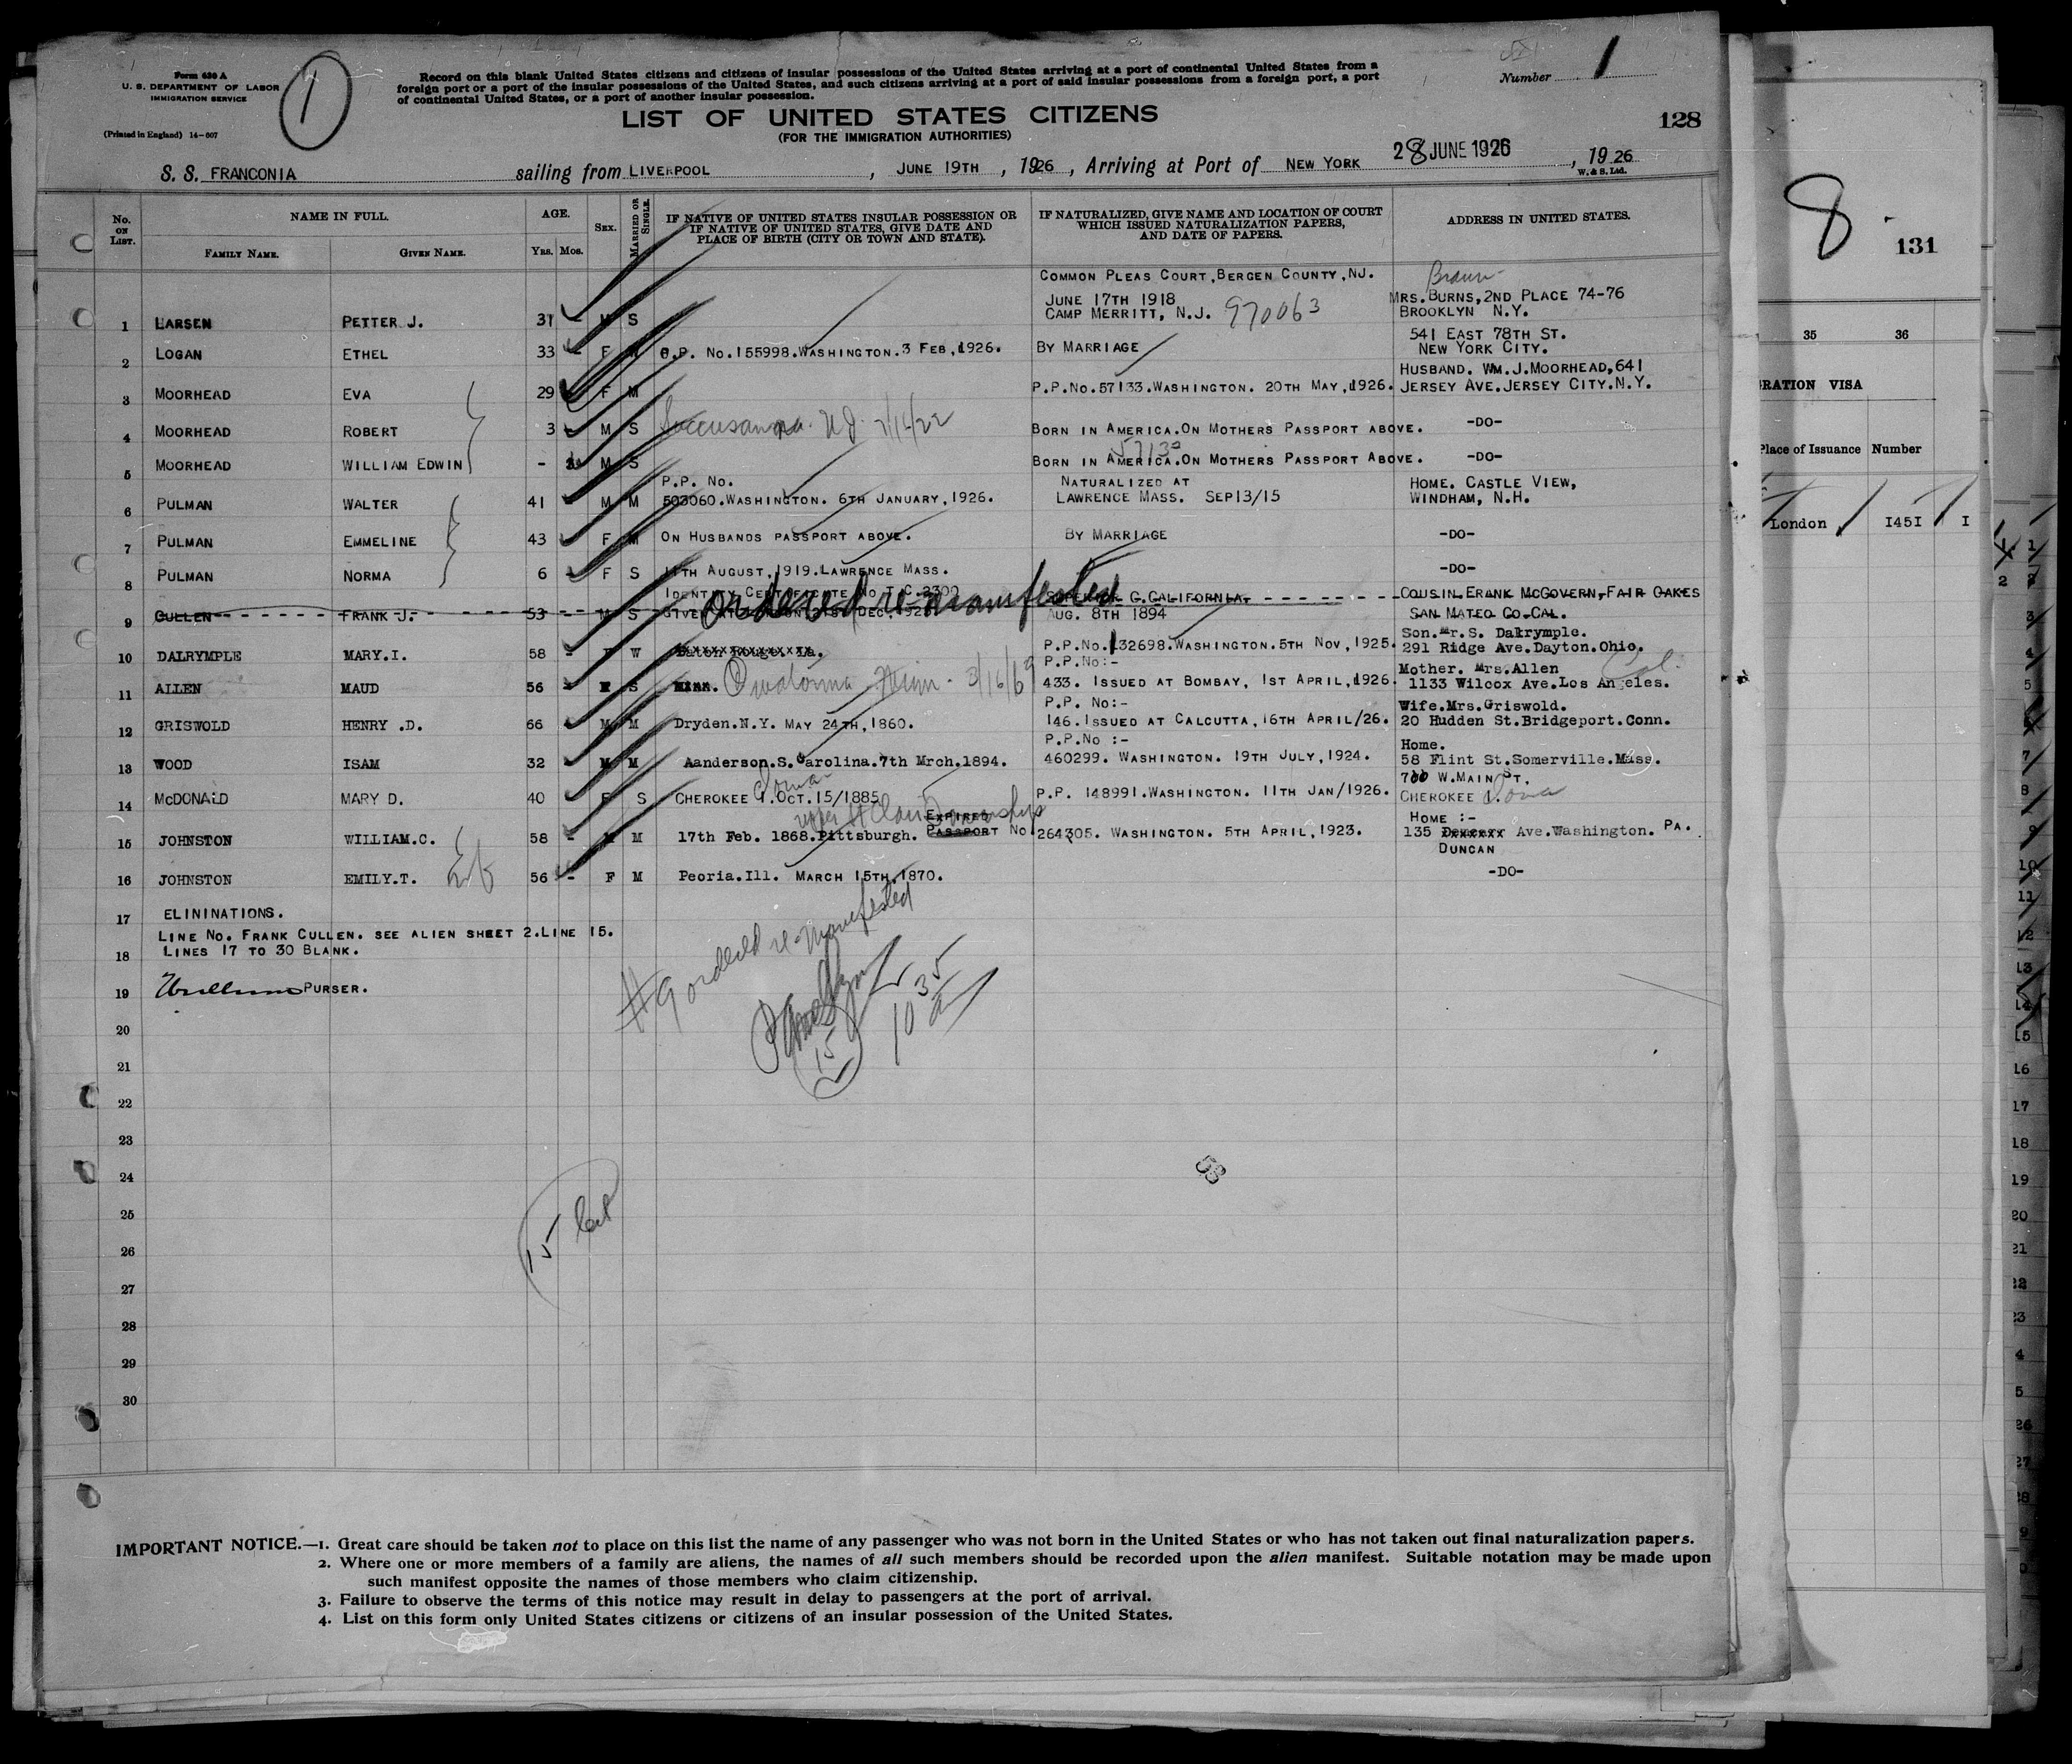 Form 630 A
U. S. DEPARTMENT OF LABOR
IMMIGRATION SERVICE
(Printed in England) 14-607
1
Record on this blank United States citizens and citizens of insular possessions of the United States arriving at a port of continental United States from a
foreign port or a port of the insular possessions of the United States, and such citizens arriving at a port of said insular possessions from a foreign port, a port
of continental United States, or a port of another insular possession.
Number 1
LIST OF UNITED STATES CITIZENS
128
(FOR THE IMMIGRATION AUTHORITIES)
S. S. FRANCONIA sailing from LIVERPOOL, JUNE 19TH, 1926, Arriving at Port of NEW YORK 28 JUNE 1926, 1926
W. & S. Ltd.
No. ON LIST.
NAME IN FULL.
FAMILY NAME. GIVEN NAME.
AGE.
YRS. MOS.
SEX.
MARRIED OR SINGLE.
IF NATIVE OF UNITED STATES INSULAR POSSESSION OR
IF NATIVE OF UNITED STATES, GIVE DATE AND
PLACE OF BIRTH (CITY OR TOWN AND STATE).
IF NATURALIZED, GIVE NAME AND LOCATION OF COURT
WHICH ISSUED NATURALIZATION PAPERS,
AND DATE OF PAPERS.
ADDRESS IN UNITED STATES.
COMMON PLEAS COURT, BERGEN COUNTY, NJ.
JUNE 17TH 1918 MRS. BURNS, 2ND PLACE 74-76
1 LARSEN PETTER J. 31 - M S CAMP MERRITT, N.J. 970063 BROOKLYN N.Y.
541 EAST 78TH ST.
2 LOGAN ETHEL 33 - F M P.P. No. 155998. WASHINGTON. 3 FEB, 1926. BY MARRIAGE NEW YORK CITY.
HUSBAND. WM. J. MOORHEAD, 641
3 MOORHEAD EVA 29 F M P.P. No. 57133. WASHINGTON. 20TH MAY, 1926. JERSEY AVE. JERSEY CITY. N.Y.
4 MOORHEAD ROBERT 3 - M S Succusanna NJ 7/14/22 BORN IN AMERICA. ON MOTHERS PASSPORT ABOVE. -DO-
5 MOORHEAD WILLIAM EDWIN - M S BORN IN AMERICA. ON MOTHERS PASSPORT ABOVE. -DO-
P.P. No. NATURALIZED AT HOME. CASTLE VIEW,
6 PULMAN WALTER 41 - M M 503060. WASHINGTON. 6TH JANUARY, 1926. LAWRENCE MASS. SEP 13/15 WINDHAM, N.H.
7 PULMAN EMMELINE 43 F M ON HUSBANDS PASSPORT ABOVE. BY MARRIAGE -DO-
8 PULMAN NORMA 6 - F S 11TH AUGUST, 1919. LAWRENCE MASS. -DO-
ordered re-manifested
IDENTITY CERTIFICATE No. CALIFORNIA COUSIN FRANK MCGOVERN, FAIR OAKES
9 CULLEN FRANK J. 53 - M S AUG. 8TH 1894 SAN MATEO CO. CAL.
Son. Mr. S. Dalrymple.
10 DALRYMPLE MARY. I. 58 - F W Baton Rouge. La. P.P. No. 132698. WASHINGTON. 5TH NOV, 1925. 291 Ridge Ave. Dayton. Ohio.
P.P. No:- Mother. Mrs. Allen Cal.
11 ALLEN MAUD 56 - F S Minn. Owatonna Minn - 3/16/69 433. ISSUED AT BOMBAY, 1ST APRIL, 1926. 1133 Wilcox Ave. Los Angeles.
P.P. No:- Wife. Mrs. Griswold.
12 GRISWOLD HENRY .D. 66 M M Dryden. N.Y. MAY 24TH, 1860. 146. ISSUED AT CALCUTTA, 16TH APRIL/26. 20 Hudden St. Bridgeport. Conn.
P.P. No :- Home.
13 WOOD ISAM 32 - M M Aanderson. S. Carolina. 7th Mrch. 1894. 460299. WASHINGTON. 19TH JULY, 1924. 58 Flint St. Somerville. Mass.
Iowa 700 W. MAIN ST.
14 McDONALD MARY D. 40 F S CHEROKEE I. OCT. 15/1885 P.P. 148991. WASHINGTON. 11TH JAN/1926. CHEROKEE I. Iowa
upper St Clair Township EXPIRED HOME :-
15 JOHNSTON WILLIAM. C. 58 - M M 17th Feb. 1868. Pittsburgh. PASSPORT No 264305. WASHINGTON. 5TH APRIL, 1923. 135 Ave. Washington. PA.
DUNCAN
16 JOHNSTON EMILY. T. 56 - F M Peoria. Ill. MARCH 15TH. 1870. -DO-
17 ELININATIONS.
LINE NO. FRANK CULLEN. SEE ALIEN SHEET 2. LINE 15.
18 LINES 17 TO 30 BLANK.
#9 ordered re-manifested
19 PURSER.
15
10 35 am
20
21
22
23
24
25
26
27
28
29
30
58
15
IMPORTANT NOTICE.—1. Great care should be taken not to place on this list the name of any passenger who was not born in the United States or who has not taken out final naturalization papers.
2. Where one or more members of a family are aliens, the names of all such members should be recorded upon the alien manifest. Suitable notation may be made upon
such manifest opposite the names of those members who claim citizenship.
3. Failure to observe the terms of this notice may result in delay to passengers at the port of arrival.
4. List on this form only United States citizens or citizens of an insular possession of the United States.
8
131
35 36
RATION VISA
Place of Issuance Number
London 1451 1